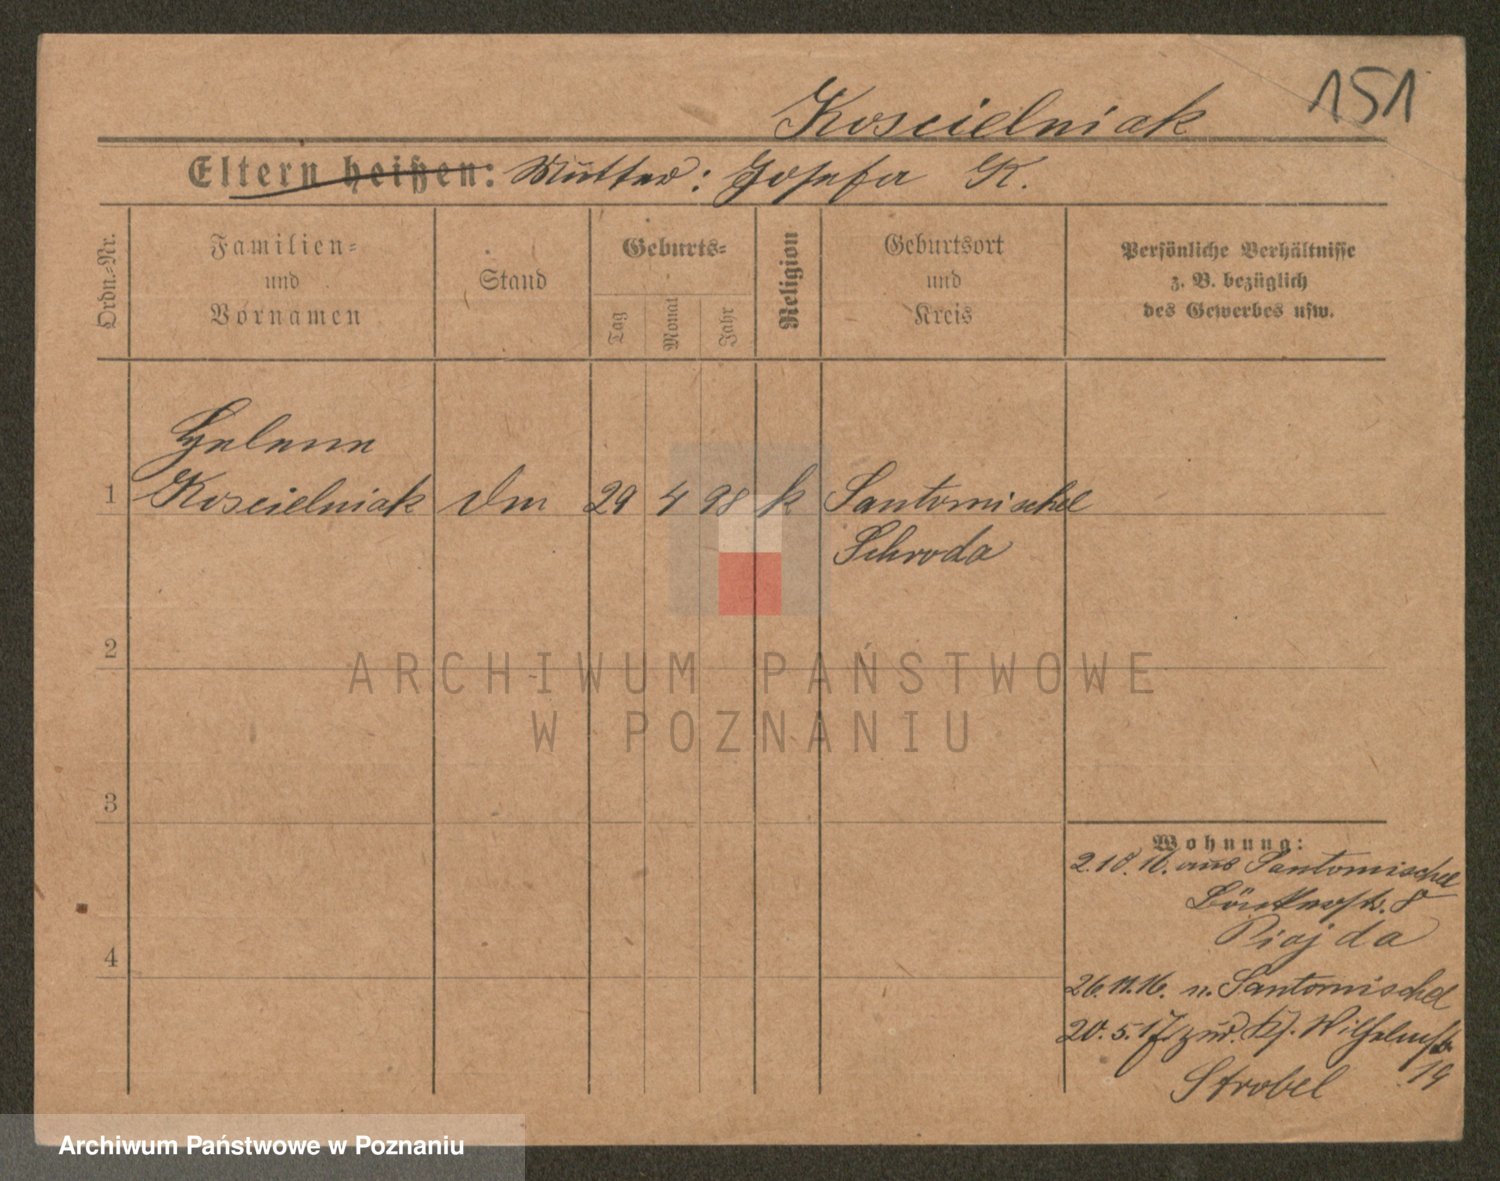 151
Koscielniak
Eltern heißen: Mutter: Josefa K.
Ordn.-Nr.
Familien-
und
Vornamen
Stand
Geburts-
Tag
Monat
Jahr
Religion
Geburtsort
und
Kreis
Persönliche Verhältnisse
z. B. bezüglich
des Gewerbes usw.
Helene
1 Koscielniak Dm 29 4 98 k Santomischel
Schroda
2
ARCHIWUM PAŃSTWOWE
W POZNANIU
3
Wohnung:
2.10.16. aus Santomischel
8
Piajda
4
26.11.16. n. Santomischel
20.5.17. zur. Wilhelmstr.
19
Strobel
Archiwum Państwowe w Poznaniu